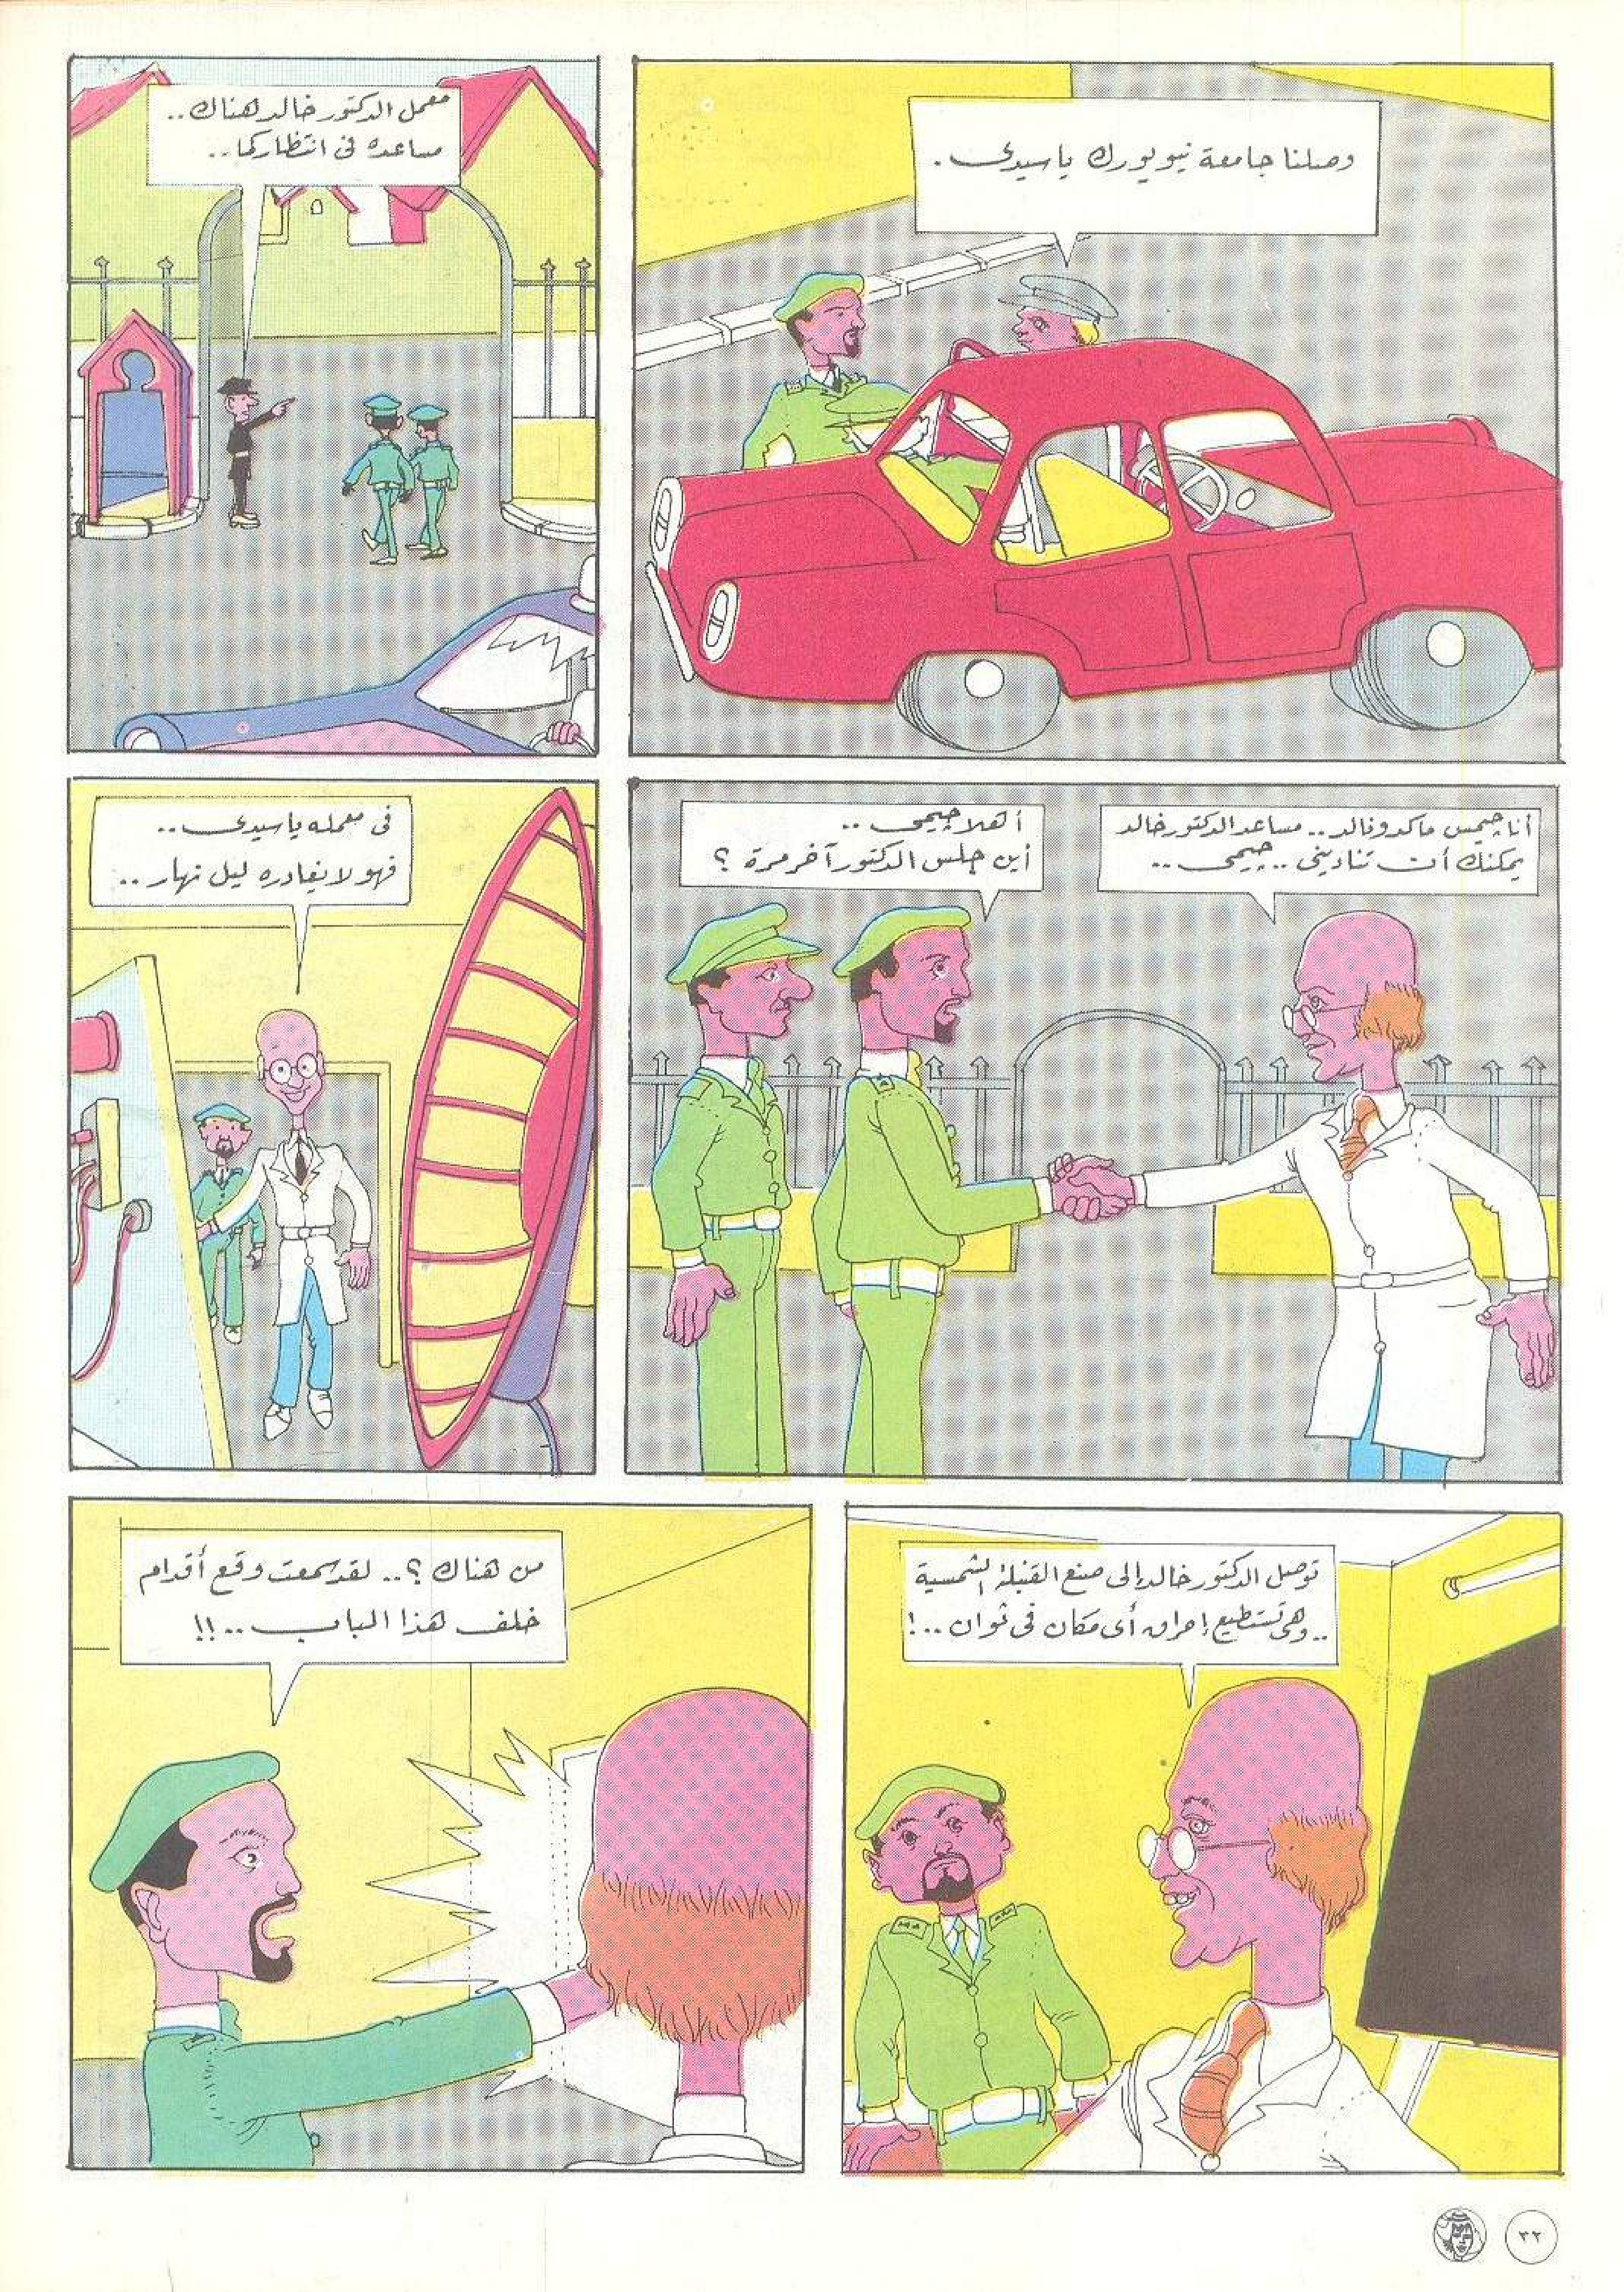 وصلنا جامعة نيويورك ياسيدى .
معمل الدكتور خالد هناك ..
مساعده فى انتظاركما ..
أنا چيمس ماكدونالد .. مساعد الدكتور خالد
يمكنك أن تنادينى .. چيمى ..
أهلا چيمى ..
أين جلس الدكتور آخر مرة ؟
فى معمله ياسيدى ..
فهو لا يغادره ليل نهار ..
توصل الدكتور خالد إلى صنع القنبلة الشمسية
.. وهى تستطيع إحراق أى مكان فى ثوان .. !
من هناك ؟ .. لقد سمعت وقع أقدام
خلف هذا الباب .. !!
٣٢